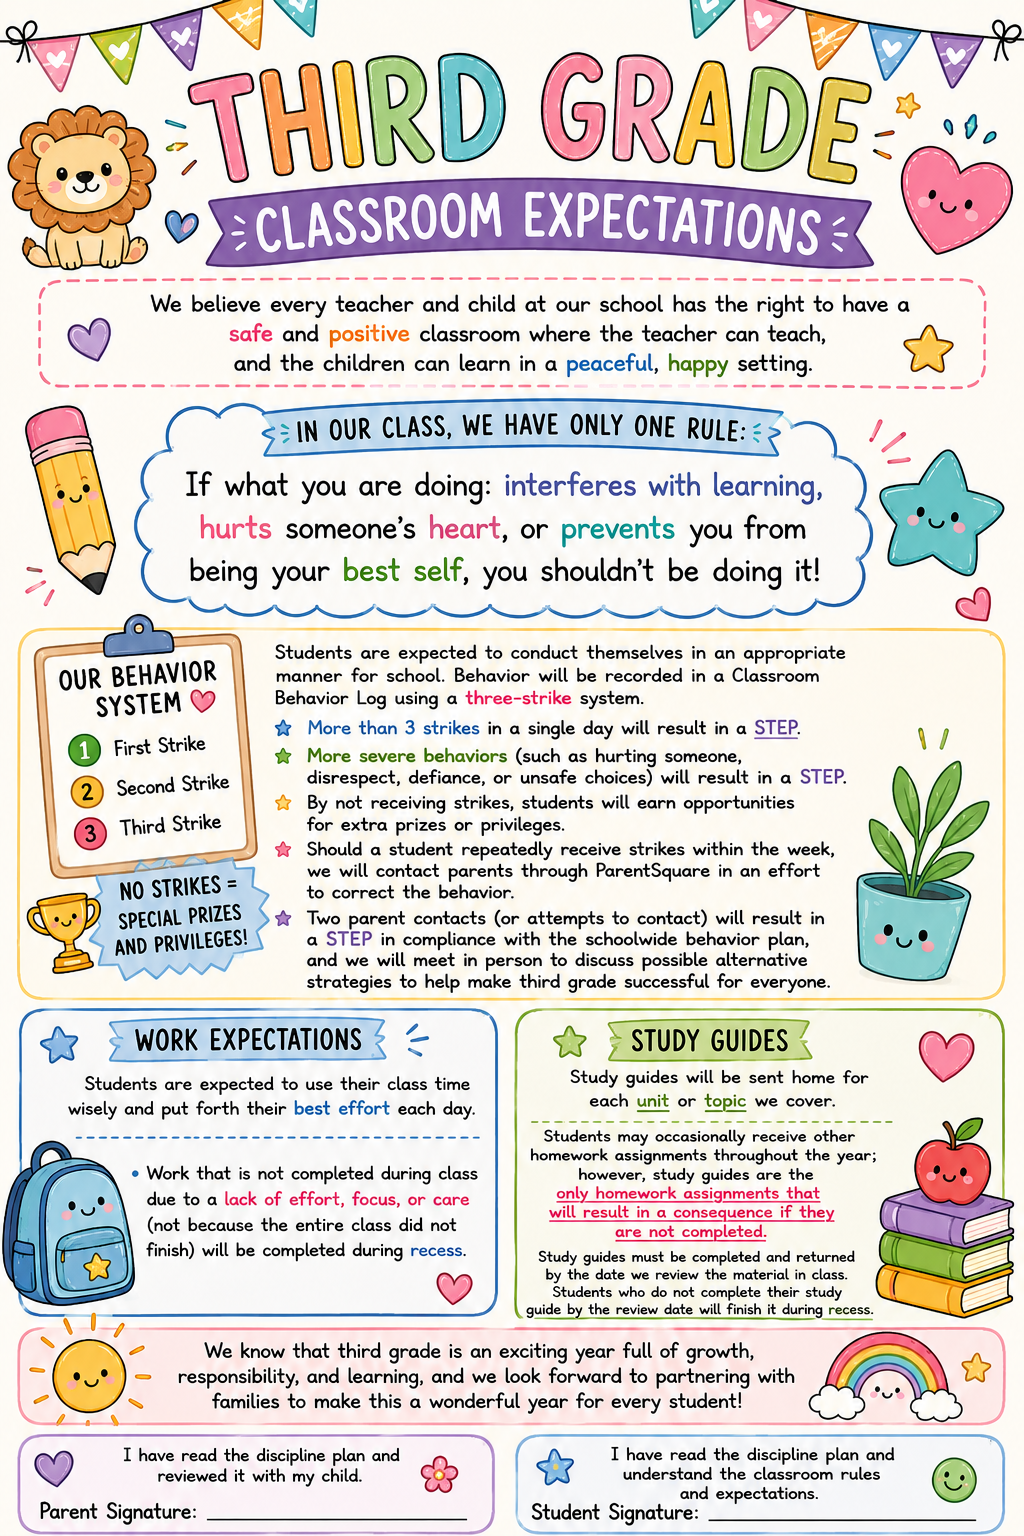 THIRD GRADE
CLASSROOM EXPECTATIONS
We believe every teacher and child at our school has the right to have a
safe and positive classroom where the teacher can teach,
and the children can learn in a peaceful, happy setting.
IN OUR CLASS, WE HAVE ONLY ONE RULE:
If what you are doing: interferes with learning,
hurts someone's heart, or prevents you from
being your best self, you shouldn't be doing it!
OUR BEHAVIOR
SYSTEM
1 First Strike
2 Second Strike
3 Third Strike
NO STRIKES =
SPECIAL PRIZES
AND PRIVILEGES!
Students are expected to conduct themselves in an appropriate
manner for school. Behavior will be recorded in a Classroom
Behavior Log using a three-strike system.
More than 3 strikes in a single day will result in a STEP.
More severe behaviors (such as hurting someone,
disrespect, defiance, or unsafe choices) will result in a STEP.
By not receiving strikes, students will earn opportunities
for extra prizes or privileges.
Should a student repeatedly receive strikes within the week,
we will contact parents through ParentSquare in an effort
to correct the behavior.
Two parent contacts (or attempts to contact) will result in
a STEP in compliance with the schoolwide behavior plan,
and we will meet in person to discuss possible alternative
strategies to help make third grade successful for everyone.
WORK EXPECTATIONS
Students are expected to use their class time
wisely and put forth their best effort each day.
• Work that is not completed during class
due to a lack of effort, focus, or care
(not because the entire class did not
finish) will be completed during recess.
STUDY GUIDES
Study guides will be sent home for
each unit or topic we cover.
Students may occasionally receive other
homework assignments throughout the year;
however, study guides are the
only homework assignments that
will result in a consequence if they
are not completed.
Study guides must be completed and returned
by the date we review the material in class.
Students who do not complete their study
guide by the review date will finish it during recess.
We know that third grade is an exciting year full of growth,
responsibility, and learning, and we look forward to partnering with
families to make this a wonderful year for every student!
I have read the discipline plan and
reviewed it with my child.
Parent Signature:
I have read the discipline plan and
understand the classroom rules
and expectations.
Student Signature: